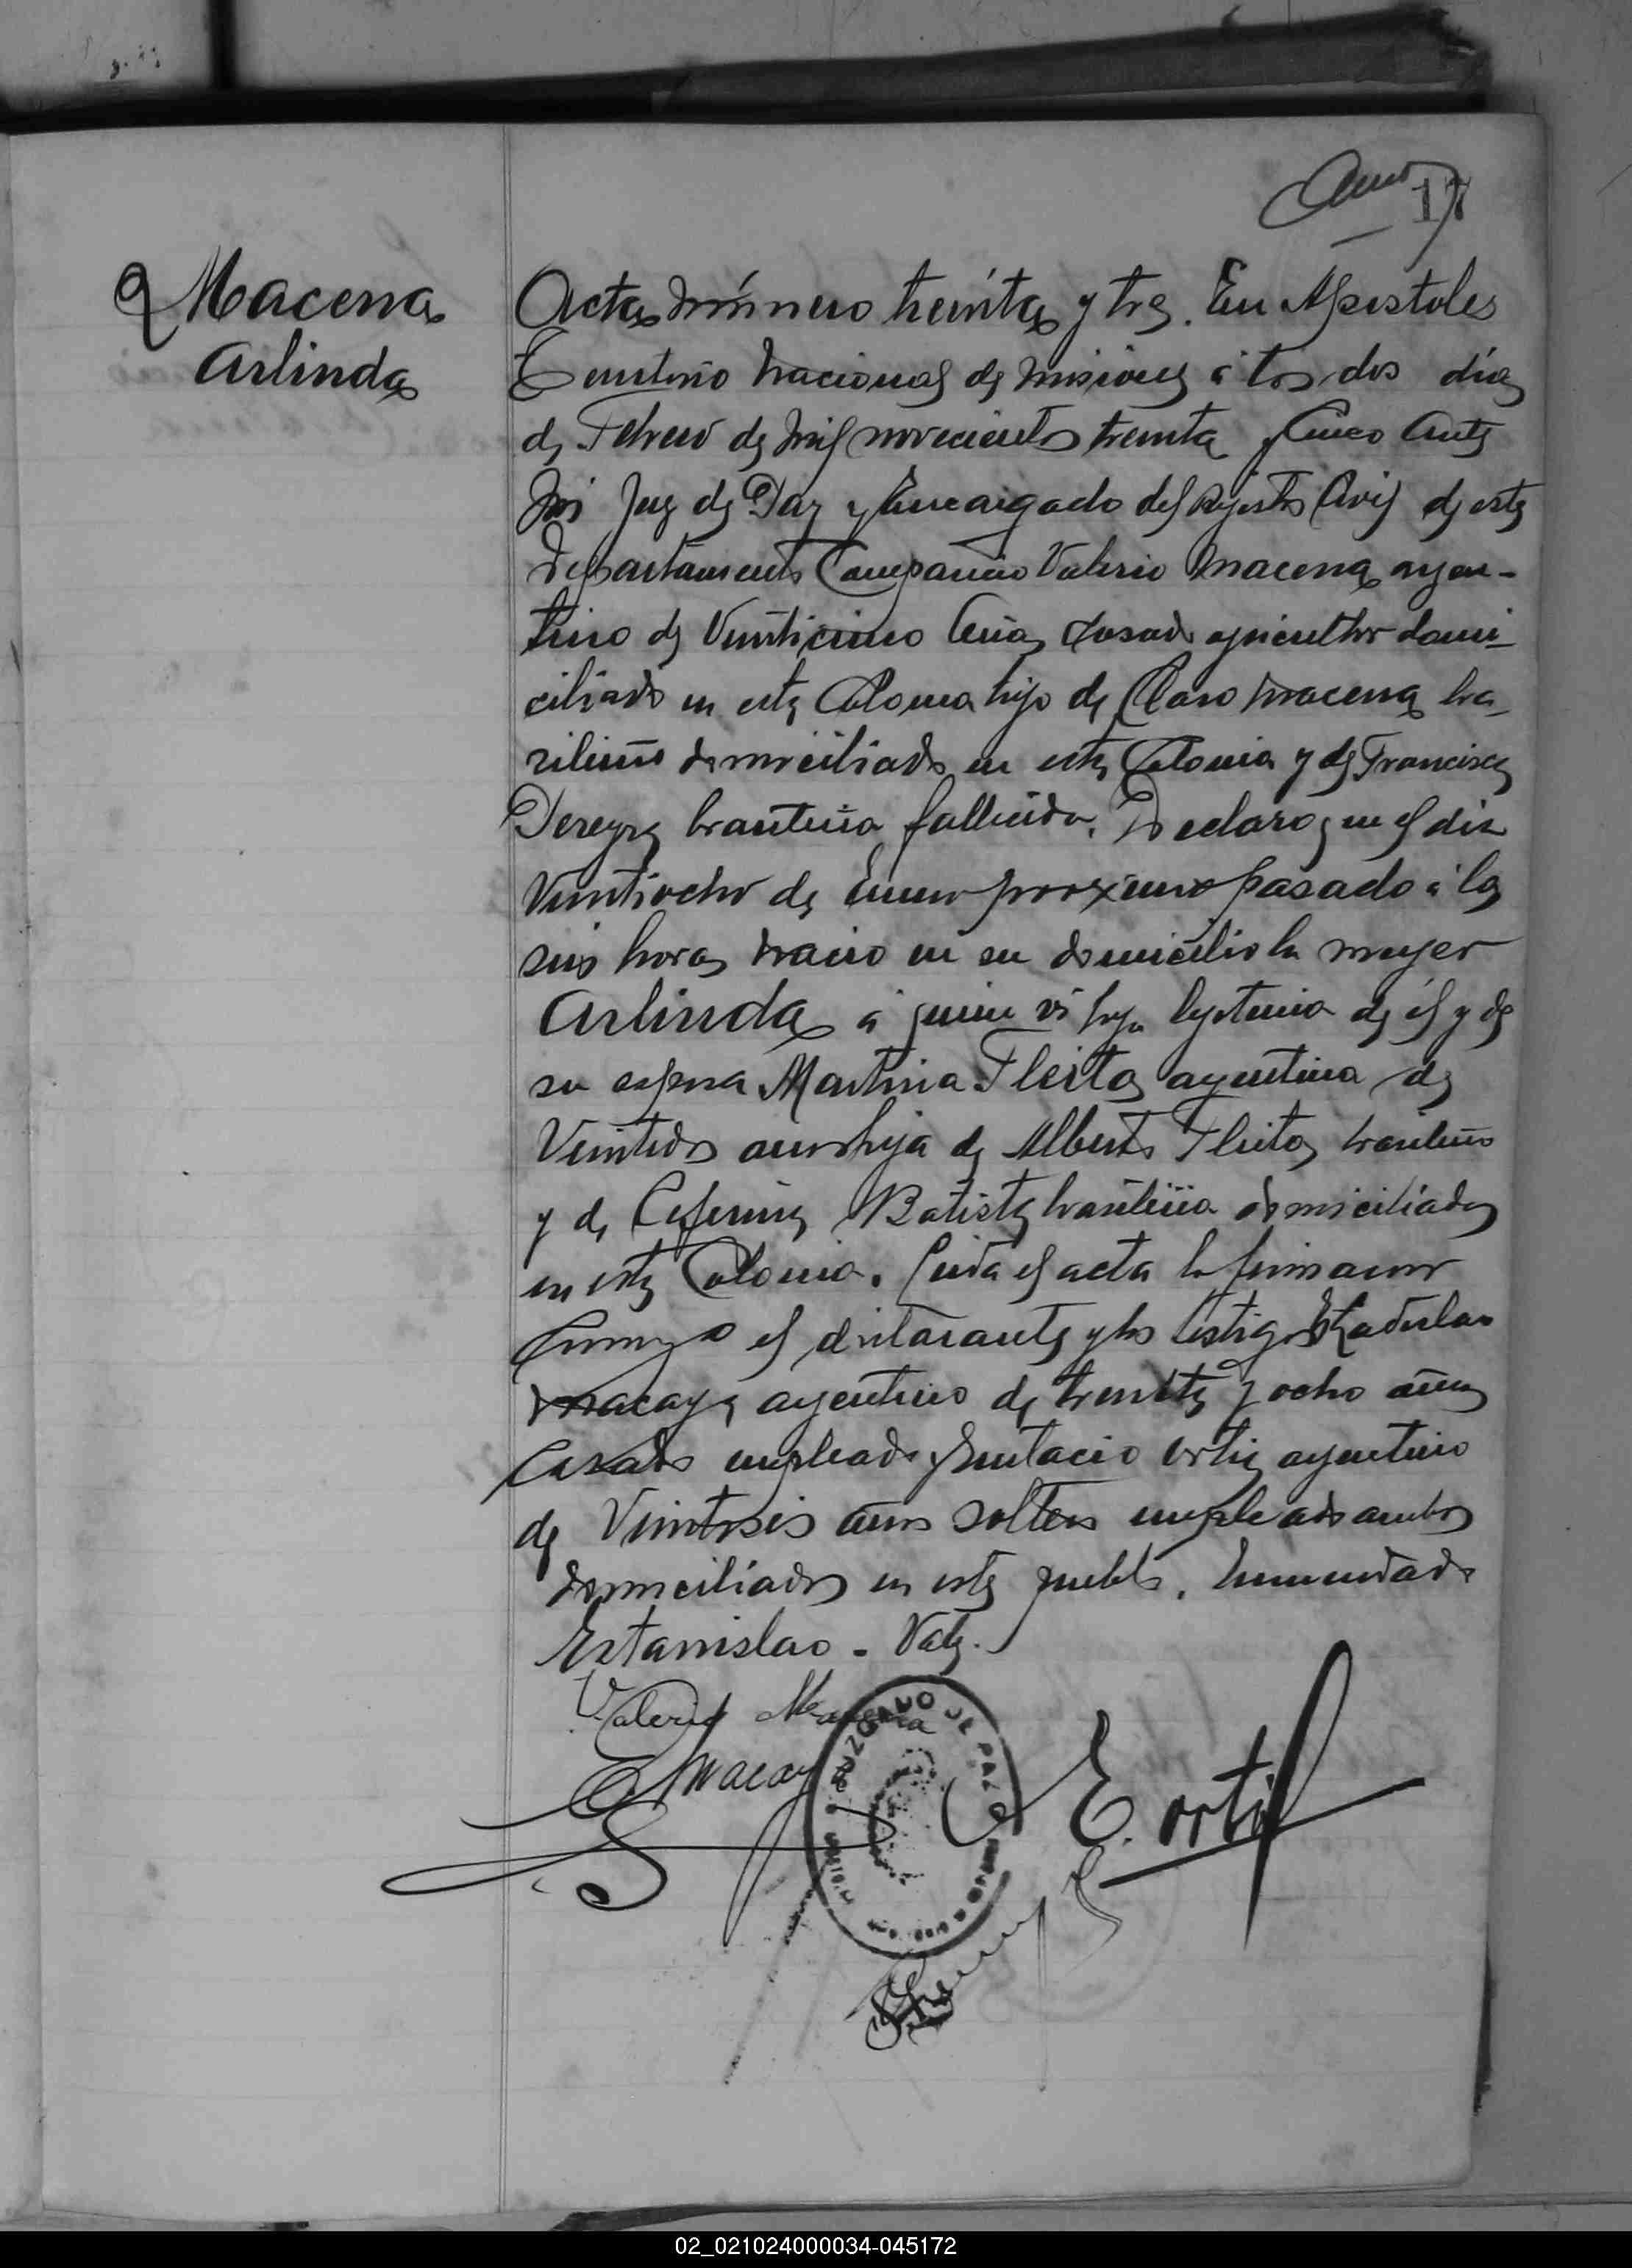 17
Macena
Arlinda
Acta número treinta y tres. En Apostoles
Territorio Nacional de Misiones á los dos días
de Febrero de mil novecientos treinta y cinco ante
mi Juez de Paz y Encargado del Rejistro Civil de este
Departamento Compareció Valerio Macena argen-
tino de Veinticinco años casado agricultor domi-
ciliado en esta Colonia hijo de Claro Macena bra-
zileño domiciliado en esta Colonia y de Francisca
Pereyra brasileña fallecida. Declaro que el dia
Veintiocho de Enero proximo pasado á las
seis horas nacio en su domicilio la mujer
Arlinda á quien vi hija lejitima de él y de
su esposa Martina Fleitas argentina de
Veintidos años hija de Alberto Fleitas brasileño
y de Ceferina Batista brasileña domiciliados
en esta Colonia. Leida el acta la firmaron
conmigo el declarante y los testigos Estadislao
Macaya argentino de treinta y ocho años
Casado empleado y Eustacio Ortiz argentino
de Veintiseis años soltero empleado ambos
domiciliados en este pueblo. Enmendado
Estanislao - Vale.
Valerio Macena
E Macay
E. Orti
JUZGADO DE PAZ
02_021024000034-045172